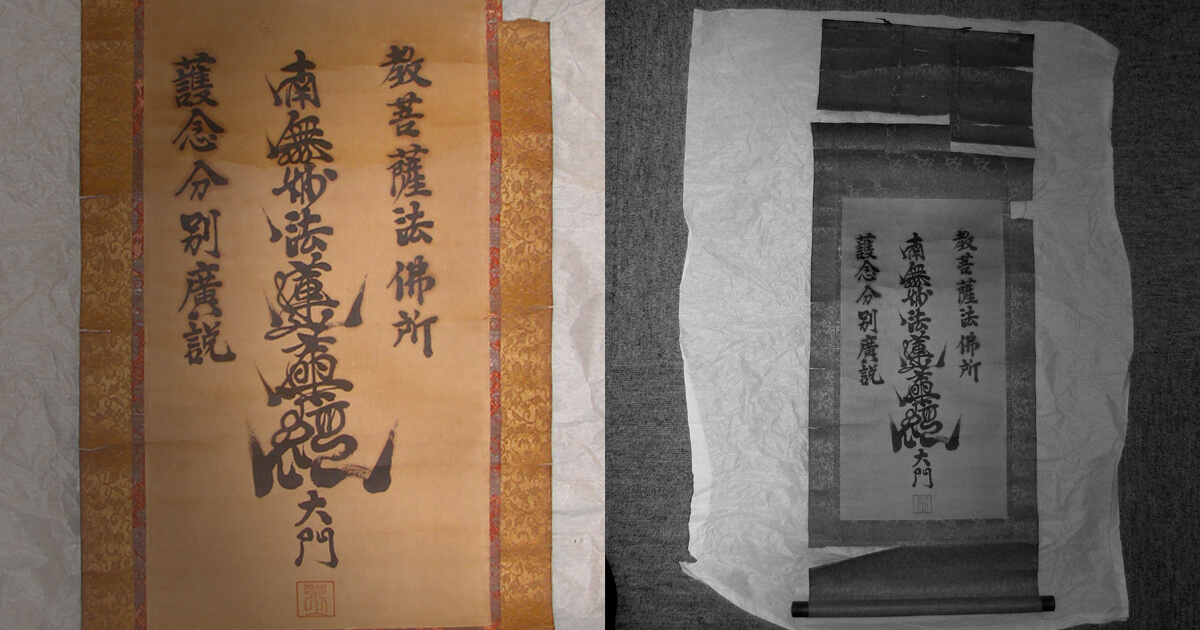 教菩薩法佛所
南無妙法蓮華經
大門
護念分別廣説
教菩薩法佛所
南無妙法蓮華經
大門
護念分別廣説